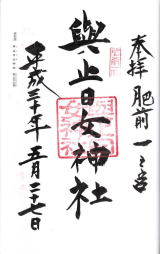 奉拝 肥前一之宮
與止日女神社
平成三十年五月二十七日